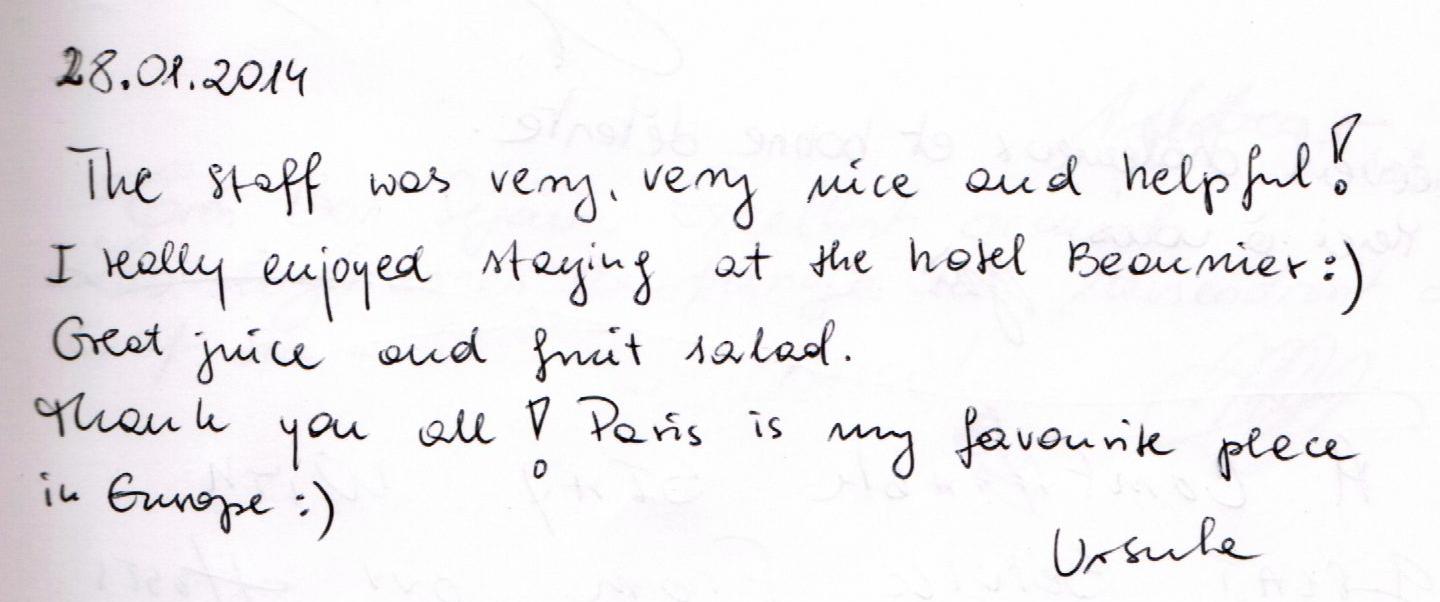 28.01.2014
The staff was very, very nice and helpful!
I really enjoyed staying at the hotel Beaunier :)
Great juice and fruit salad.
Thank you all! Paris is my favourite place
in Europe :)
Ursula